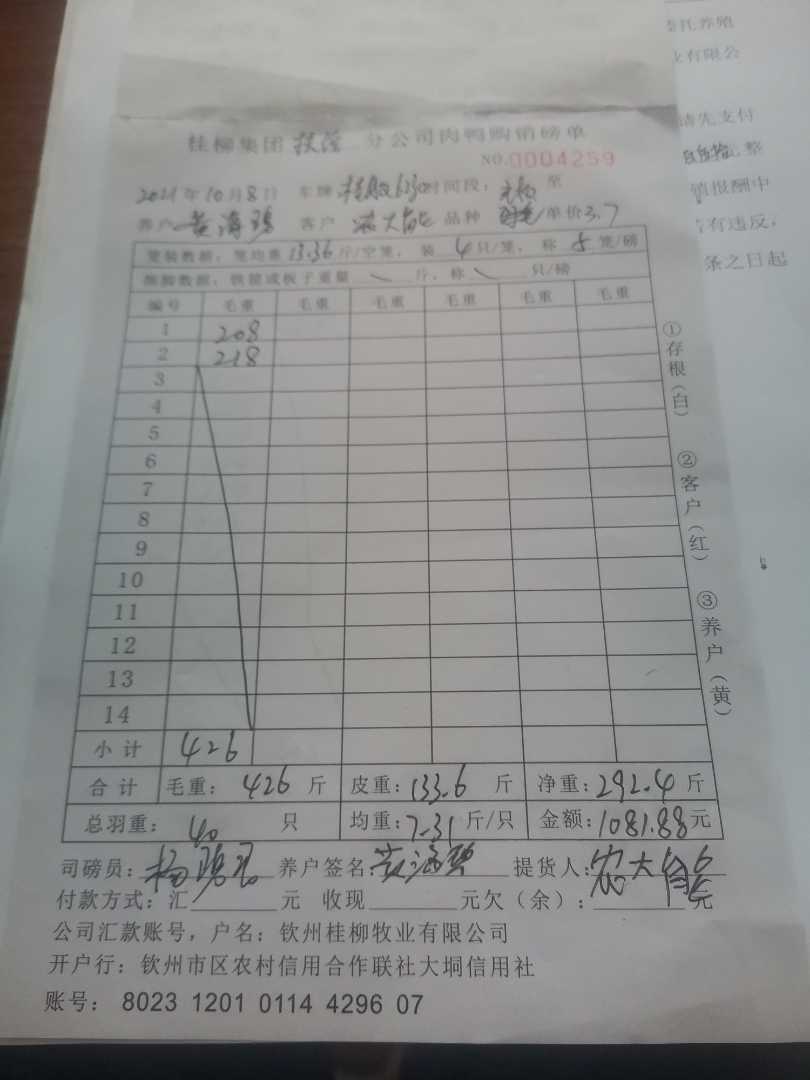 委托养殖
业有限公
请先支付
整
销报酬中
有违反，
条之日起
桂柳集团 分公司肉鸭购销磅单
NO.0004259
2021年10月8日 车牌 时间段： 至
养户 黄海 客户 农大能 品种 单价3.7
笼装数据：笼均重13.36斤/空笼， 装 4只/笼， 称 5笼/磅
捆脚数据：铁筐或板子重量 斤，称 只/磅
编号 毛重 毛重 毛重 毛重 毛重 毛重
1 208
2 218
3
4
5
6
7
8
9
10
11
12
13
14
小计 426
合计 毛重：426斤 皮重：133.6斤 净重：292.4斤
总羽重： 40 只 均重：7.31斤/只 金额：1081.88元
司磅员：杨 养户签名：黄海 提货人：农大能
付款方式：汇 元 收现 元欠（余）： 元
公司汇款账号，户名：钦州桂柳牧业有限公司
开户行：钦州市区农村信用合作联社大垌信用社
账号： 8023 1201 0114 4296 07
①存根（白） ②客户（红） ③养户（黄）